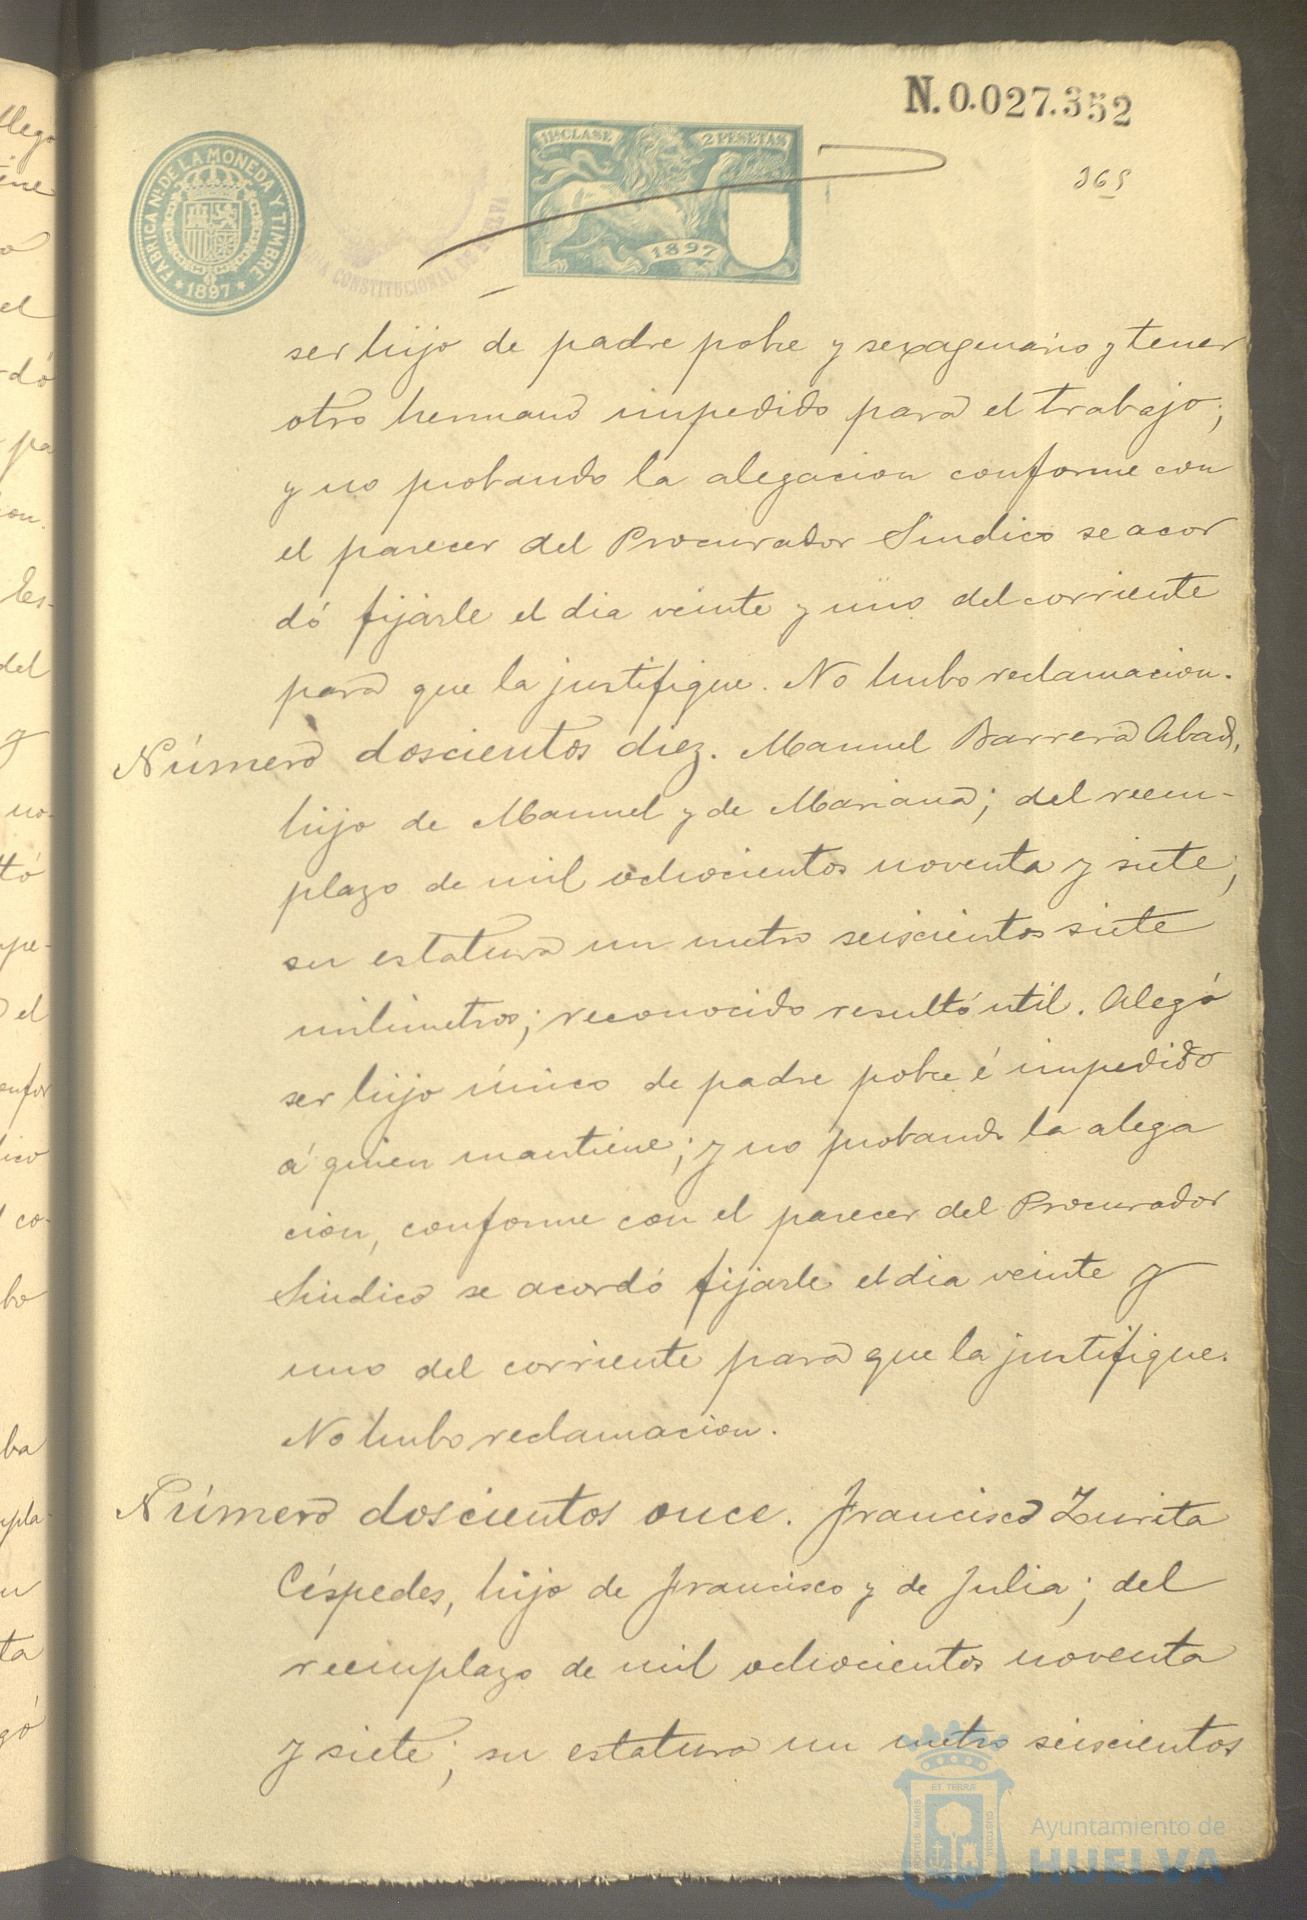 N. 0.027.352
11ª CLASE
2 PESETAS
1897
FABRICA Nl. DE LA MONEDA Y TIMBRE
* 1897 *
CONSTITUCIONAL DE HUELVA
365
ser hijo de padre pobre y sexagenario y tener
otro hermano impedido para el trabajo;
y no probando la alegacion conforme con
el parecer del Procurador Sindico se acor
dó fijarle el dia veinte y uno del corriente
para que la justifique. No hubo reclamacion.
Número doscientos diez. Manuel Barrera Abad,
hijo de Manuel y de Mariana; del reem-
plazo de mil ochocientos noventa y siete;
su estatura un metro seiscientos siete
milimetros; reconocido resultó util. Alegó
ser hijo único de padre pobre é impedido
á quien mantiene; y no probando la alega
cion, conforme con el parecer del Procurador
Sindico se acordó fijarle el dia veinte y
uno del corriente para que la justifique.
No hubo reclamacion.
Número doscientos once. Francisco Zurita
Céspedes, hijo de Francisco y de Julia; del
reemplazo de mil ochocientos noventa
y siete; su estatura un metro seiscientos
Ayuntamiento de
HUELVA